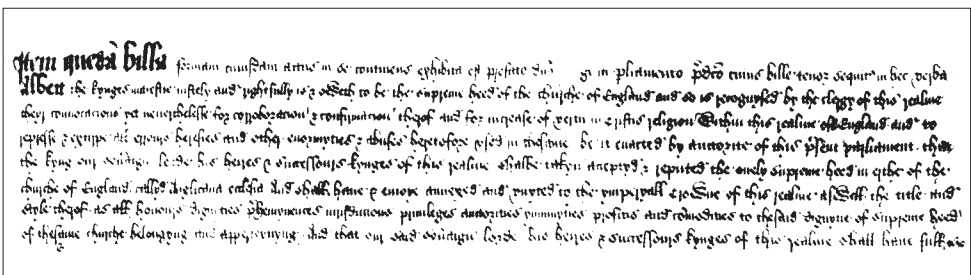 Item quedā billa formam cuiusdam actus in se continens exhibita est prefato dno g in pliamento p̄dco cuius bille tenor sequit in hec verba
Albeit the kynges maiestie iustely and rightfully is & oweth to be the supreme heed of the churche of England and so is recognysed by the clergy of this realme
theyr convocacions yet neverthelesse for corroboracion & confirmacion therof and for increase of vertu in cristis religion within this realme of England and to
represse & extirpe all errours heresies and other enormyties & abuses heretofore vsed in thesame be it enacted by auctorite of this p̄sent parliament that
the kyng our sovaign lorde his heires & successours kynges of this realme shalbe takyn acceptyd & reputed the onely supreme heed in erthe of the
churche of England called Anglicana ecclesia And shall have & enioye annexed and vnyted to the ymperyall crowne of this realme aswell the title and
style therof as all honours dignyties p̄hemynences iurisdiccions privileges auctorities ymmunyties profitis and comodities to thesaid dignyte of supreme heed
of thesame churche belongyng and apperteynyng And that our said sovaign lorde his heires & successours kynges of this realme shall have full